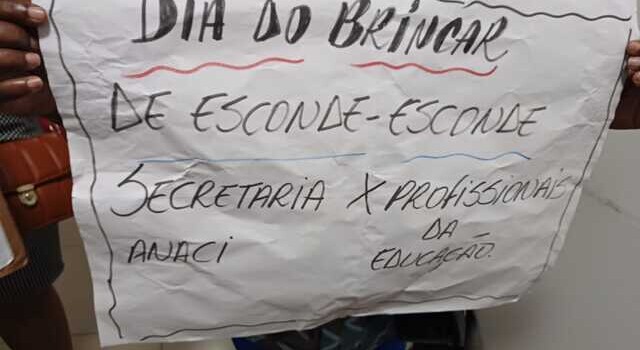 DIA DO BRINCAR
DE ESCONDE-ESCONDE
SECRETARIA X PROFISSIONAIS
ANACI DA
EDUCAÇÃO.